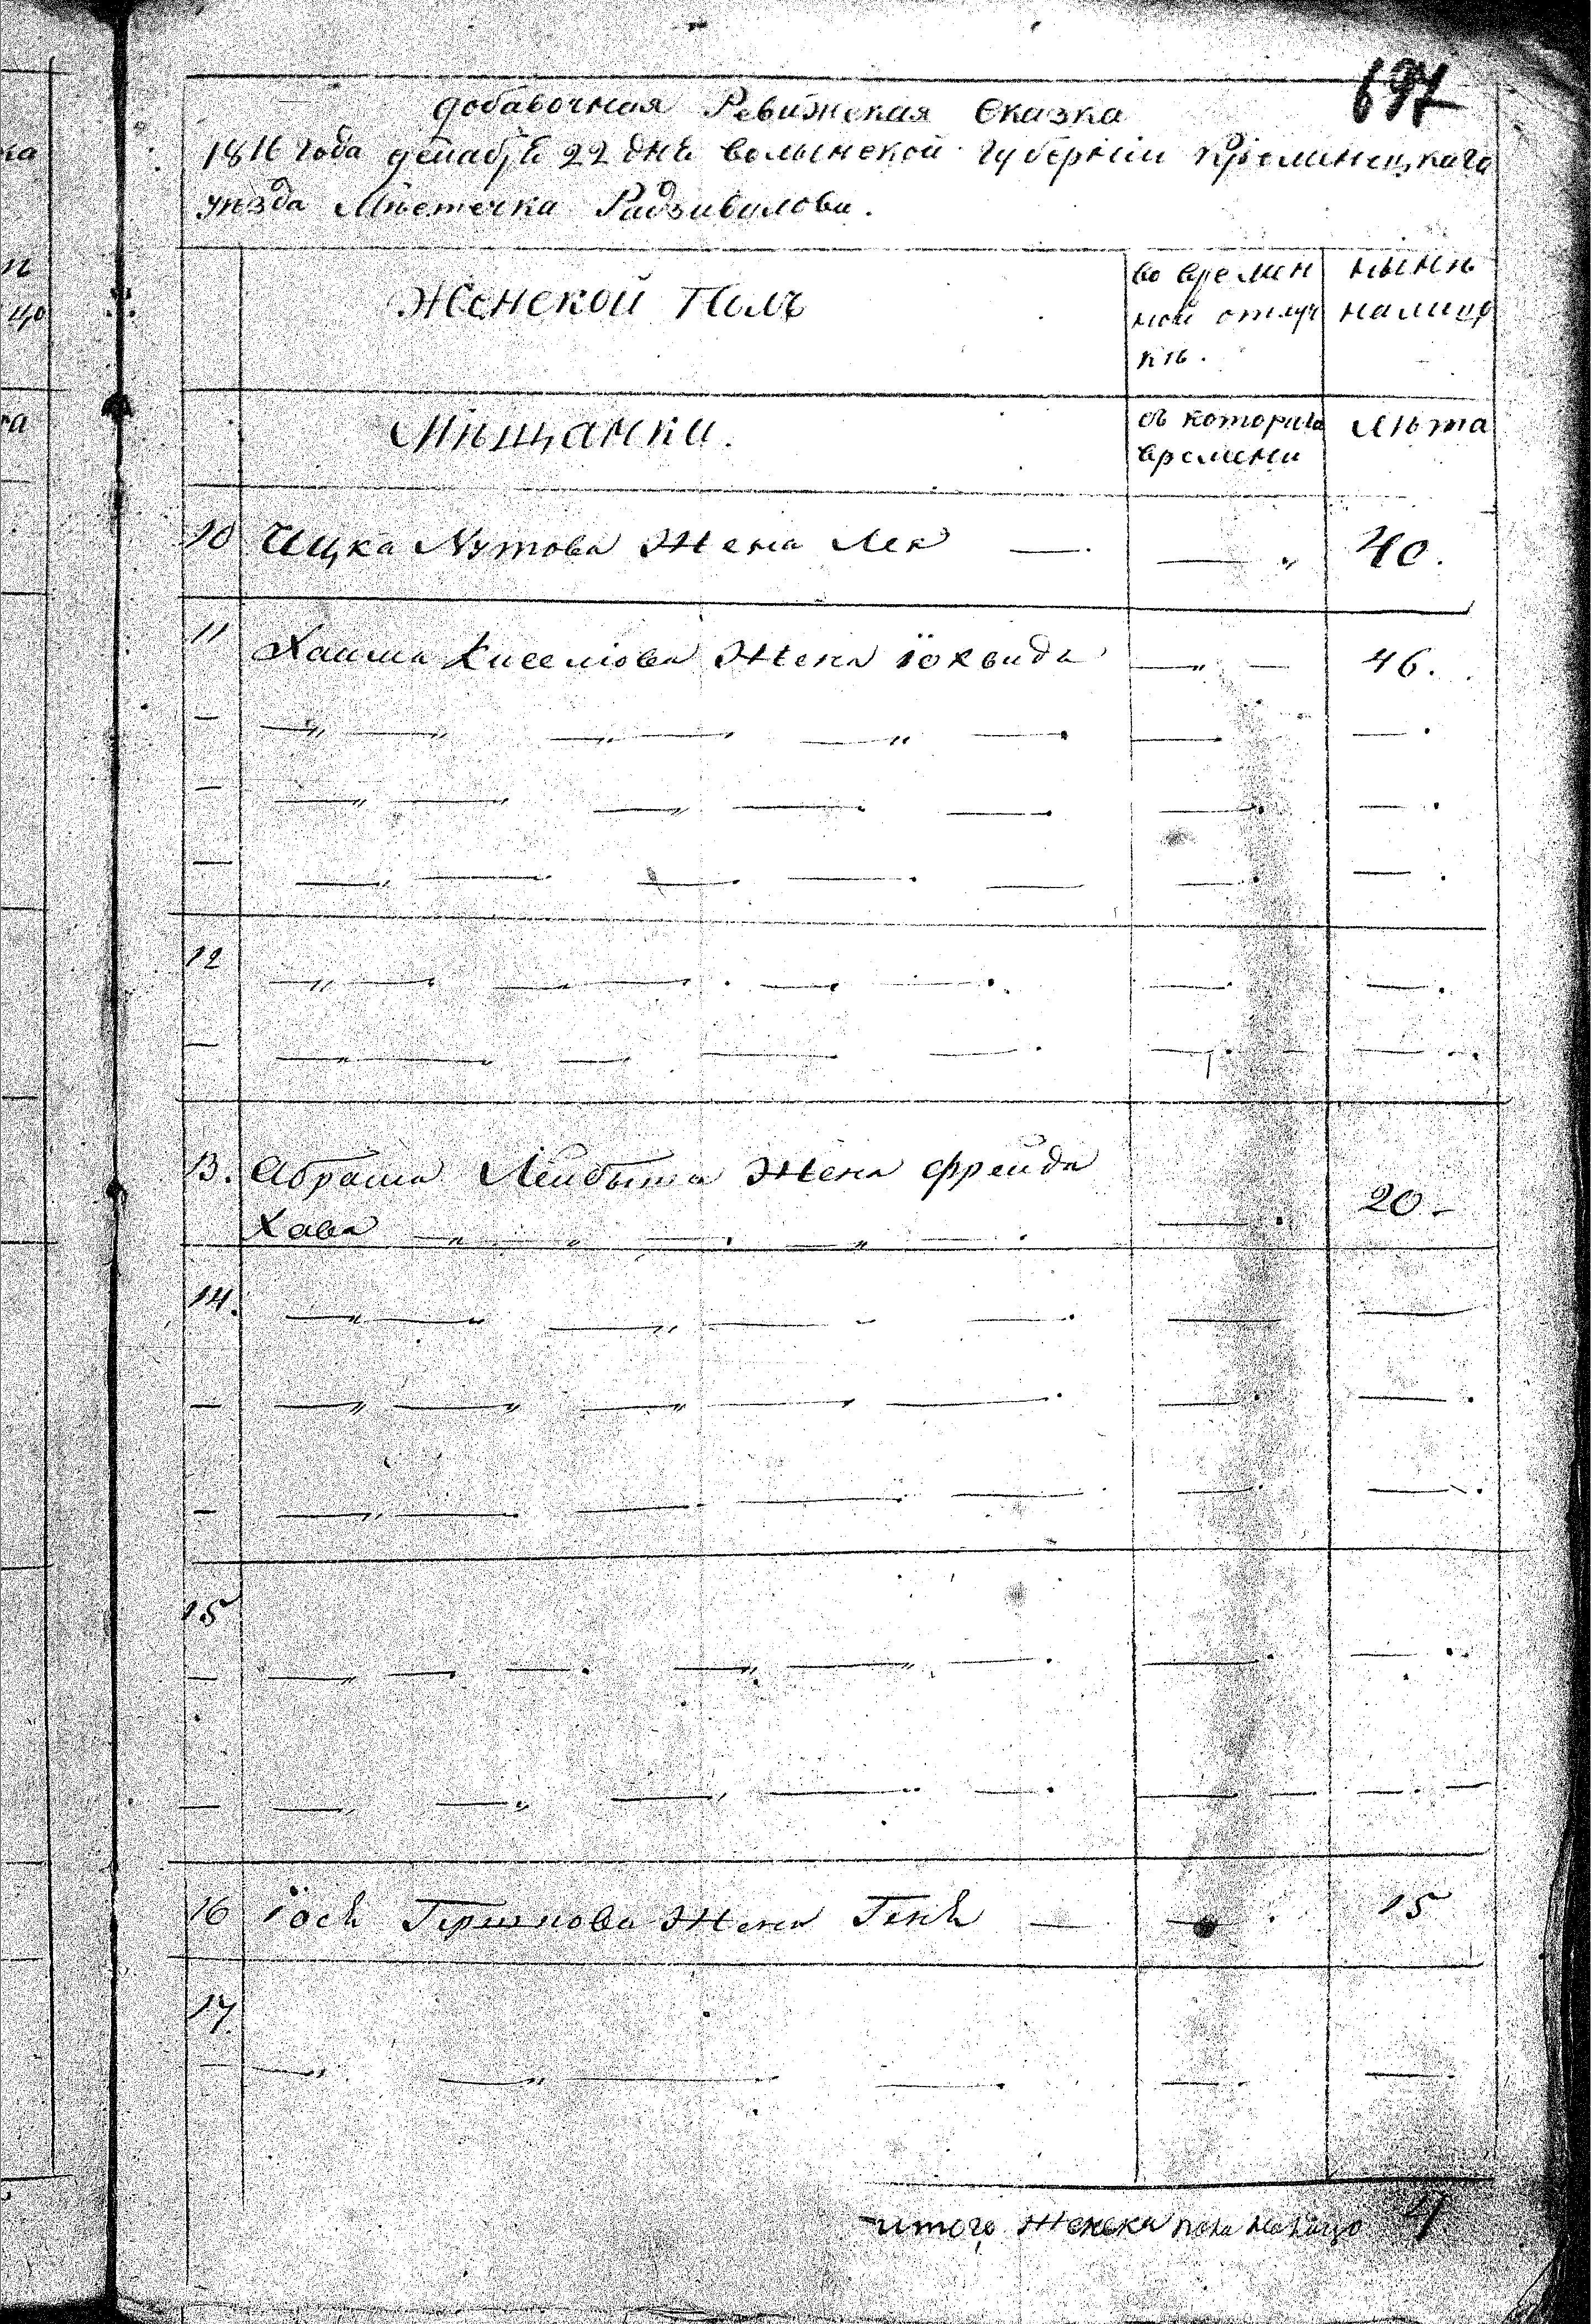 697
добавочная Ревижская Сказка
1816 года декабря 22 дня волынской губернии Кременецкаго
уезда Мѣстечка Радзивилова.
Женской Полъ
во времен
ной отлуч
кѣ.
нынѣ
налицо
Мѣщанки.
съ котораго
времени
лѣта
10 Ицка Нутова Жена Лея — . — " 40.
11 Хаима Киселіова Жена іохвида — " — 46.
12
13. Абрама Лейбыша Жена Фрейда
Хава 20 -
14.
15
16 іось Гершкова Жена Геня — — . 15
17.
итого женска пола налицо 4